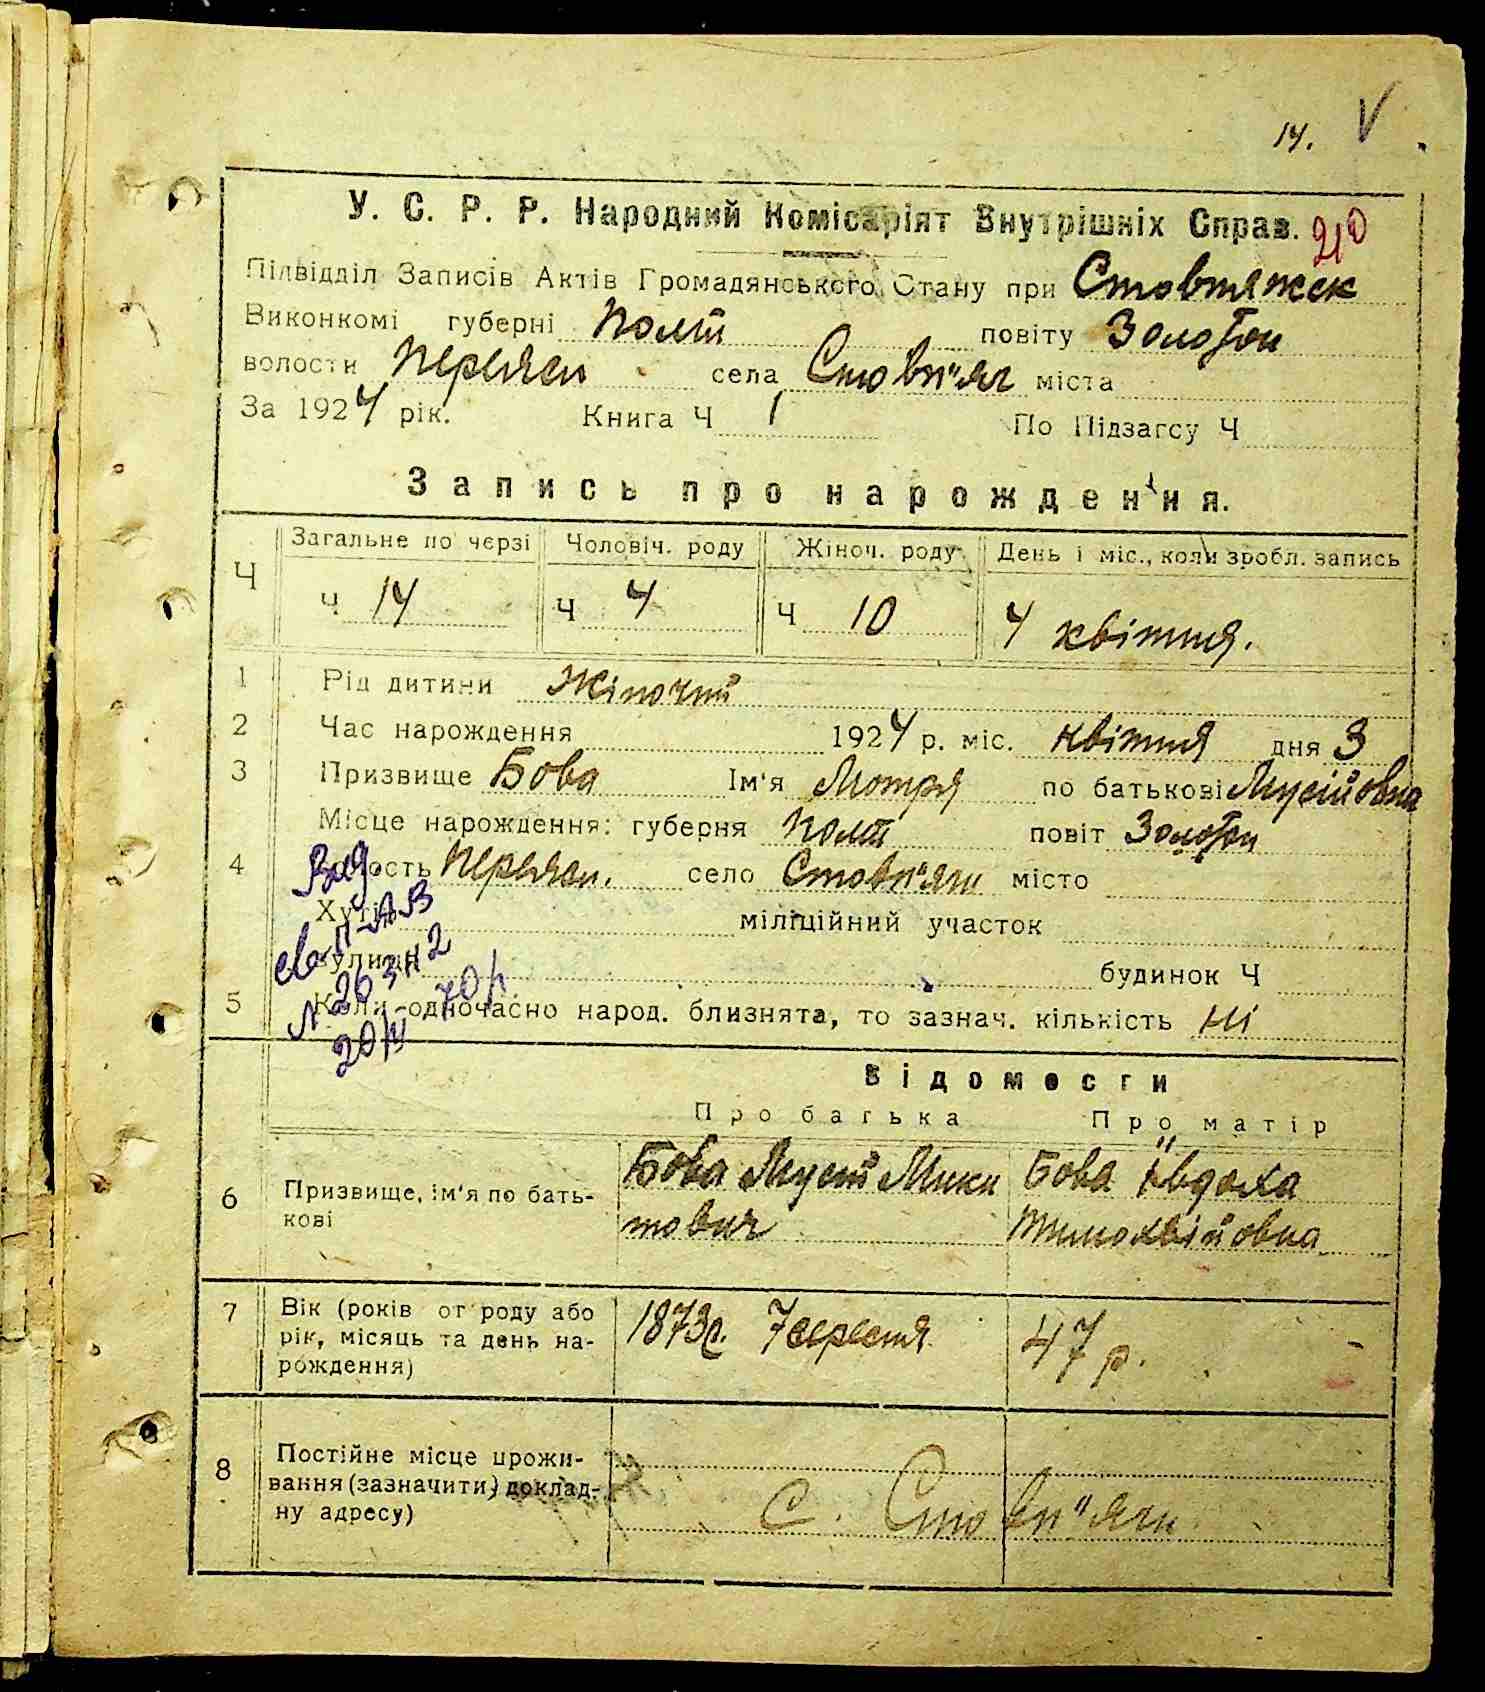 14. V
У. С. Р. Р. Народний Комісаріят Внутрішніх Справ. 210
Підвідділ Записів Актів Громадянського Стану при Стовпяжск
Виконкомі губерні Полт повіту Золотон
волости Переясл села Стовп"яг міста
За 1924 рік. Книга Ч 1 По Підзагсу Ч
Запись про нарождення.
Ч Загальне по черзі Чоловіч. роду Жіноч. роду День і міс., коли зробл. запись
Ч 14 Ч 4 Ч 10 4 квітня.
1 Рід дитини Жіночий
2 Час нарождення 1924 р. міс. квітня дня 3
3 Призвище Бова Ім'я Мотря по батькові Мусійовна
Місце нарождення: губерня Полт повіт Золотон
4 Волость Переясл. село Стовп"яги місто
Хутір міліційний участок
улиця будинок Ч
5 Коли одночасно народ. близнята, то зазнач. кількість ні
Вид
св. II-АВ
№ 263112
20/III 70р
Відомости
Про батька Про матір
6 Призвище, ім'я по бать-кові
Бова Мусій Мики
тович
Бова Ївдоха
Тимохвійовна
7 Вік (років от роду або
рік, місяць та день на-
рождення)
1873р. 7 вересня
47 р.
8 Постійне місце прожи-
вання (зазначити) доклад-
ну адресу)
с. Стовп"яги